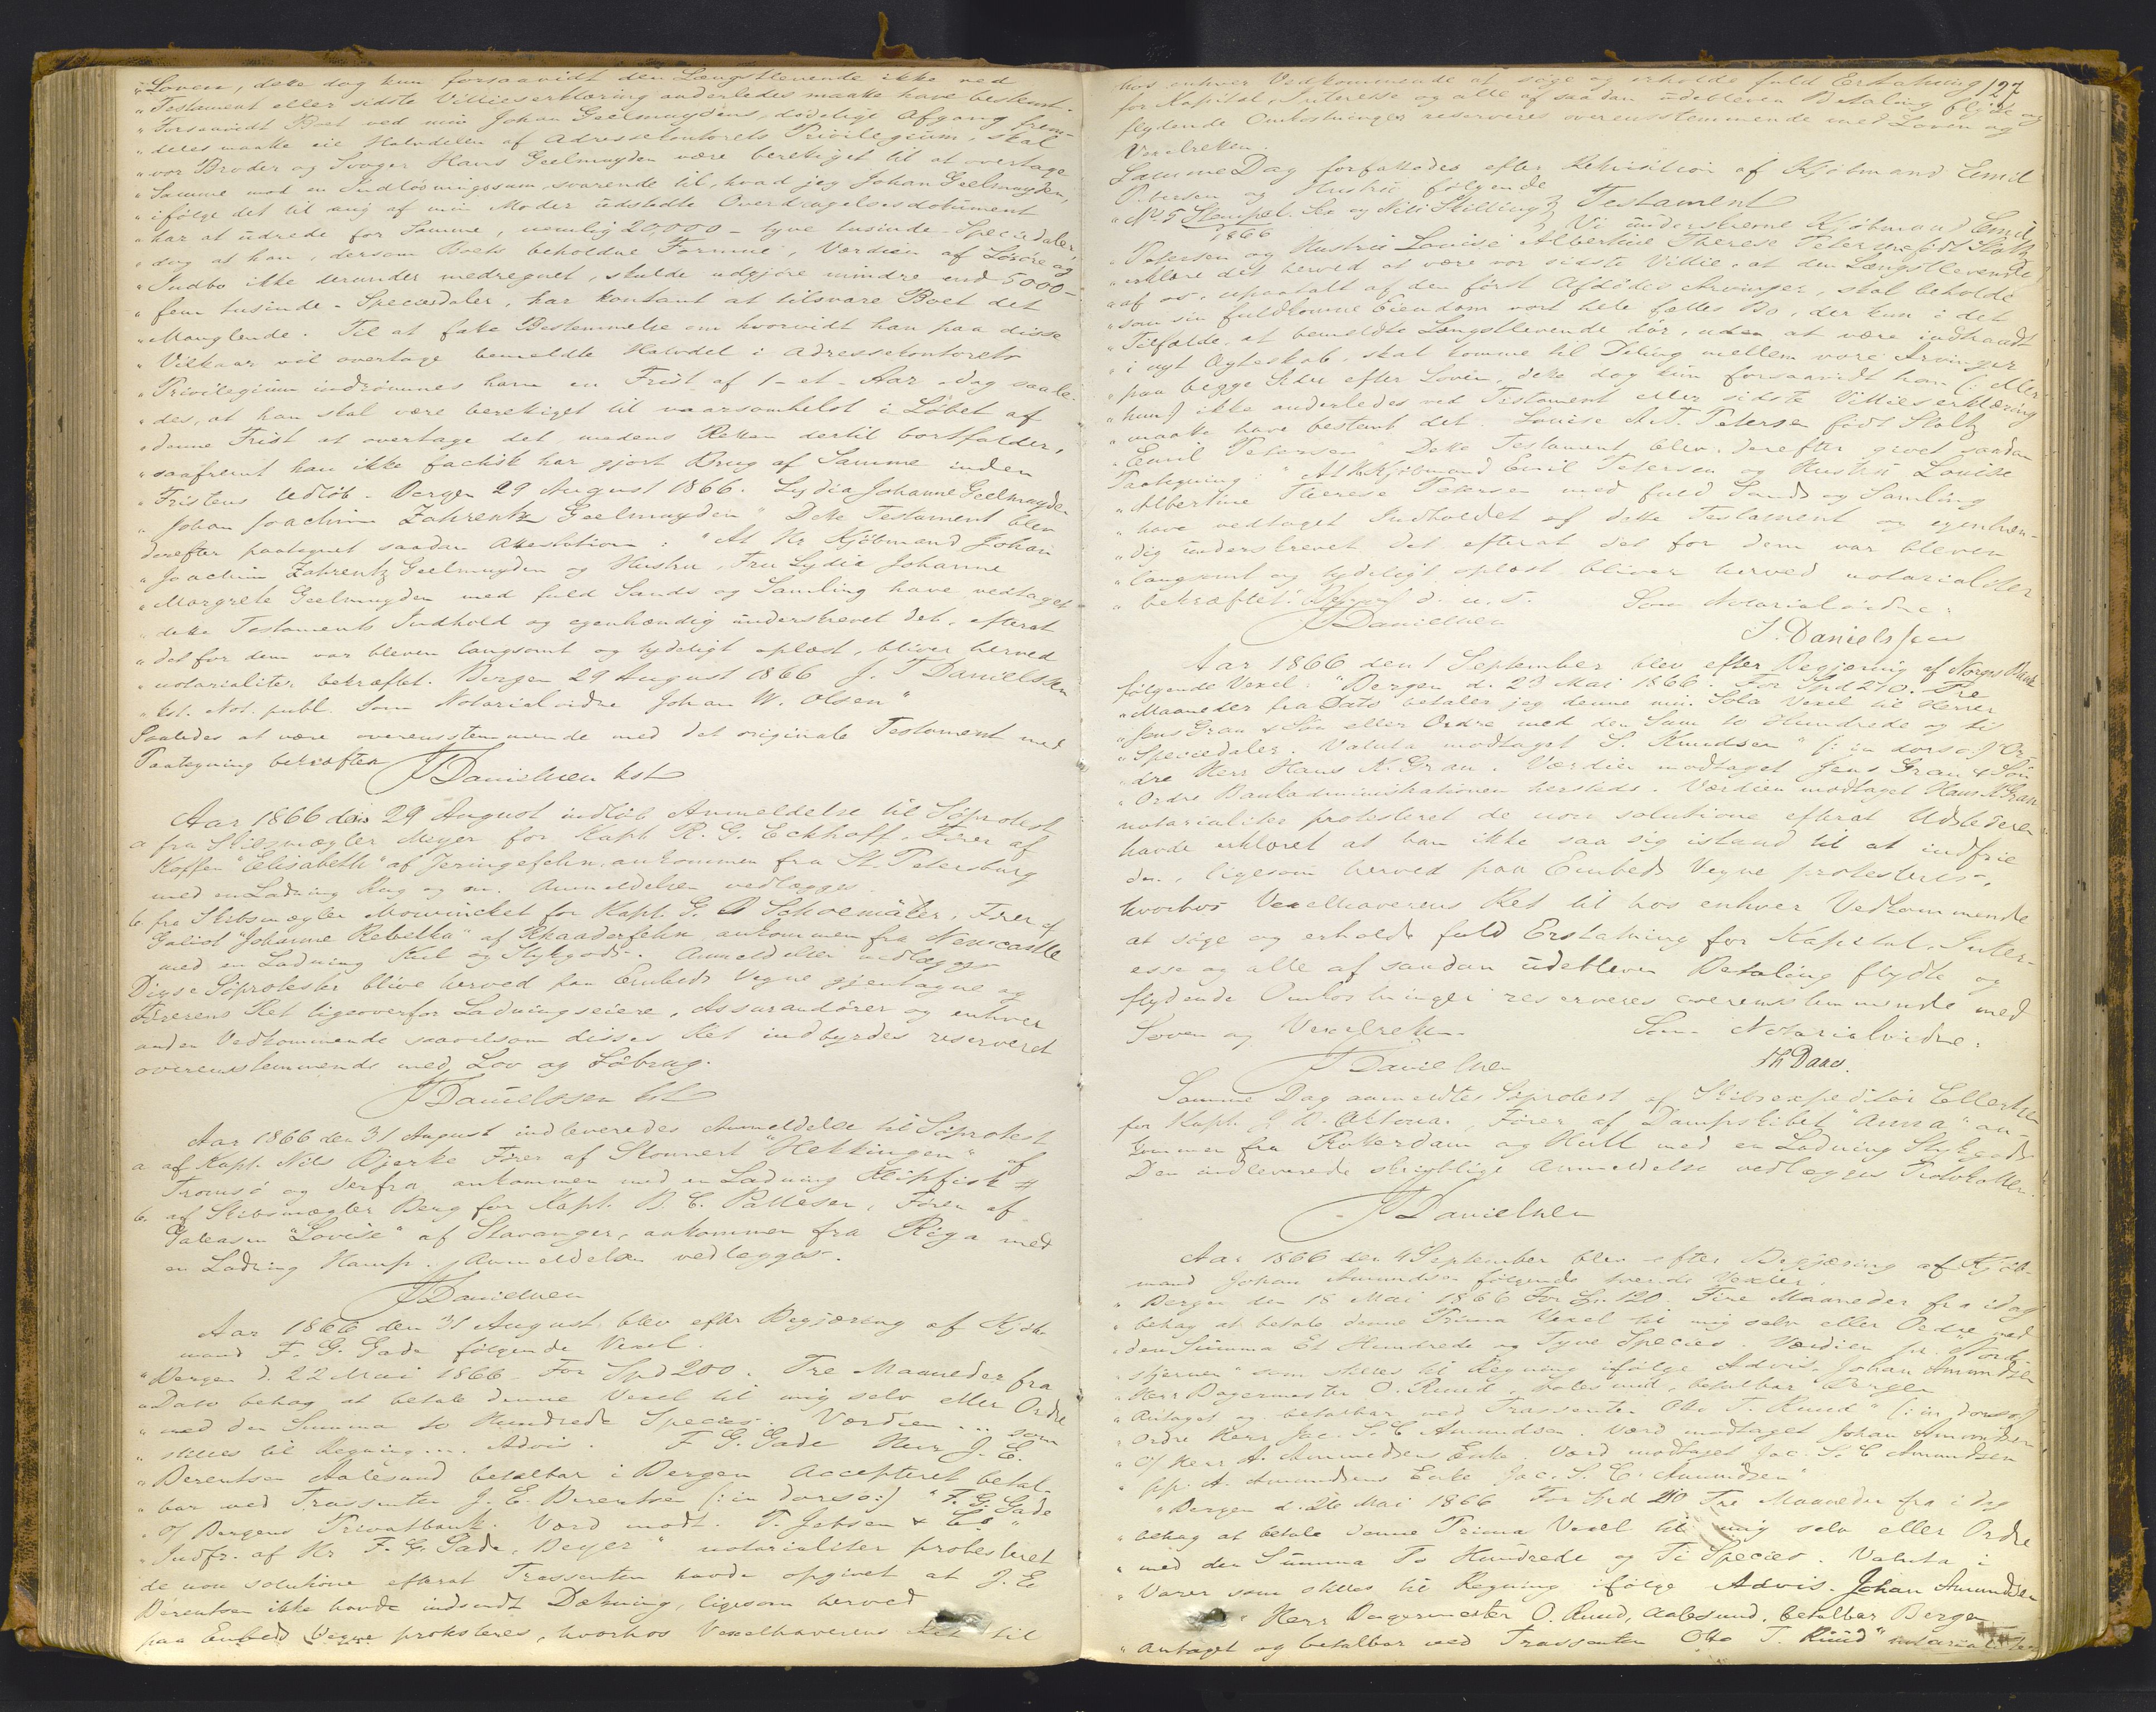 "Loven, dette dog kun forsaavidt den Længstlevende ikke ved
"Testament eller sidste Villieserklæring anderledes maatte have bestemt.
"Forsaavidt Boet ved min Johan Geelmuydens, dødelige Afgang frem-
"deles maatte eie Halvdelen af Adressekontorets Privilegium, skal
"vor Broder og Svoger Hans Geelmuyden være berettiget til at overtage
"Samme mod en Indløsningssum, svarende til, hvad jeg Johan Geelmuyden,
"ifølge det til mig af min Moder udstedte Overdragelsesdokument
"har at udrede for Samme, nemlig 20,000 - tyve tusinde - Speciedaler,
"dog at han, dersom Boets beholdne Formue, Værdien af Løsøre og
"Indbo ikke derunder medregnet, skulde udgjøre mindre end 5000 -
"fem tusinde - Speciesdaler, har kontant at tilsvare Boet det
"Manglende. Til at fatte Bestemmelse om hvorvidt han paa disse
"Vilkaar vil overtage bemeldte Halvdel i Adressekontorets
"Privilegium indrømmes ham en Frist af 1 - et - Aar - dog saale-
"des, at han skal være berettiget til naarsomhelst i Løbet af
"denne Frist at overtage det, medens Retten dertil bortfalder,
"saafremt han ikke factisk har gjort Brug af Samme inden
"Fristens Udløb. Bergen 29 August 1866. Lydia Johanne Geelmuyden
"Johan Joachim Zahrentz Geelmuyden" Dette Testament blev
derefter paategnet saadan Attestation: "At Hr Kjøbmand Johan
"Joachim Zahrentz Geelmuyden og Hustru, Fru Lydia Johanne
"Margrete Geelmuyden med fuld Sands og Samling have vedtaget
"dette Testaments Indhold og egenhændig underskrevet det, efterat
"det for dem var bleven langsomt og tydeligt oplæst, bliver herved
"notarialiter bekræftet. Bergen 29 August 1866 J. T Danielssen
"kst. Not. publ. Som Notarialvidne Johan W. Olsen"
Saaledes at være overensstemmende med det originale Testament med
Paategning bekræftes JTDanielssen kst
Aar 1866 den 29 August indløb Anmeldelse til Søprotest
a fra Skibsmægler Meyer for Kapt R. G. Eckhoff, Fører af
Koffen "Elisabeth" af Jeringsfehn, ankommen fra St. Petersburg
med en Ladning Rug og m. Anmeldelsen vedlægges.
b. fra Skibsmægler Mowinckel for Kapt. G. B Schoemäker, Fører af
Galiot "Johanne Rebekka" af Rhauderfehn ankommen fra Newcastle
med en Ladning Kul og Stykgods. Anmeldelsen vedlægges
Disse Søprotester blive herved paa Embeds Vegne gjentagne og
Førerens Ret ligeoverfor Ladningseiere, Assurandører og enhver
anden Vedkommende saavelsom disses Ret indbyrdes reserveret
overensstemmende med Lov og Søbrug.
JTDanielssen kst
Aar 1866 den 31 August indleveredes Anmeldelse til Søprotest
a af Kapt. Nils Bjerke Fører af Skonnert "Hekkingen" af
Tromsø og derfra ankommen med en Ladning Klipfisk
b. af Skibsmægler Berg for Kapt. B. C. Pallesen, Fører af
Galeasen "Lovise" af Stavanger, ankommen fra Riga med
en Ladning Hamp. Anmeldelsen vedlægges.
JTDanielssen
Aar 1866 den 31 August blev efter Begjæring af Kjøb-
mand F. G. Gade følgende Vexel.
"Bergen d. 22 Mai 1866. For Spd 200. Tre Maaneder fra
"Dato behag at betale denne Vexel til mig selv eller Ordre
"med den Summa to Hundrede Species. Værdien ... som
"stilles til Regning ... Advis. F G. Gade Herr J. E.
"Berentsen Aalesund betalbar i Bergen Accepteret betal-
"bar ved Trassenten J. E. Berentsen (: in dorso:) "F. G. Gade
"O/ Bergens Privatbank. Værd modt. P. Jebsen & Co"
"Indfr. af Hr F. G. Gade, Beyer" notarialiter protesteret
de non solutione efterat Trassenten havde opgivet at J. E.
Berentsen ikke havde indsendt Dækning, ligesom herved
paa Embeds Vegne protesteres, hvorhos Vexelhaverens Ret til
127
hos enhver Vedkommende at søge og erholde fuld Erstatning
for Kapital, Interesse og alle af saadan udebleven Betaling flydte og
flydende Omkostninger reserveres overensstemmende med Loven og
Vexelretten.
Samme Dag forfattedes efter Rekvisition af Kjøbmand Emil
Petersen og Hustru følgende Testament
"No 5 Stempel. Sex og Niti Skilling
1866
Vi underskrevne Kjøbmand Emil
"Petersen og Hustru Louise Albertine Therese Petersen født Stoltz
"erklære det herved at være vor sidste Villie, at den Længstlevende
"af os, upaatalt af den først Afdødes Arvinger, skal beholde
"som sin fuldkomne Eiendom vort hele fælles Bo, der kun i det
"Tilfælde, at bemeldte Længstlevende dør, uden at være indtraadt
"i nyt Ægteskab, skal komme til Deling mellem vore Arvinger
"paa begge Sider efter Loven, dette dog kun forsaavidt han (: eller
"hun) ikke anderledes ved Testament eller sidste Villieserklæring
"maatte have bestemt det. Louise A. T. Petersen født Stoltz
"Emil Petersen" Dette Testament blev derefter givet saadan
Paategning: "At Hr Kjøbmand Emil Petersen og Hustru Louise
"Albertine Therese Petersen med fuld Sands og Samling
"have vedtaget Indholdet af dette Testament og egenhæn-
"dig underskrevet det efterat det for dem var bleven
"langsomt og tydeligt oplæst bliver herved notarialiter
"bekræftet." Bergen d. u. s. Som Notarialvidne:
JTDanielssen J. Danielssen
Aar 1866 den 1 September blev efter Begjæring af Norges Bank
følgende Vexel: "Bergen d. 23 Mai 1866. For Spd 210. Tre
"Maaneder fra Dato betaler jeg denne min Sola Vexel til Herrer
"Jens Gran & Søn eller Ordre med den Sum to Hundrede og ti
"Speciedaler. Valuta modtaget S. Knudsen" (: in dorso:) "Or-
"dre Herr Hans K. Gran. Værdien modtaget Jens Gran & Søn
"Ordre Bankadministrationen hersteds. Værdien modtaget Hans K Gran
notarialiter protesteret de non solutione efterat Udstederen
havde erklæret at han ikke saa sig istand til at indfrie
den, ligesom herved paa Embeds Vegne protesteres,
hvorhos Vexelhaverens Ret til hos enhver Vedkommende
at søge og erholde fuld Erstatning for Kapital, Inter-
esse og alle af saadan udebleven Betaling flydte og
flydende Omkostninger reserveres overensstemmende med
Loven og Vexelretten. Som Notarialvidne:
JTDanielssen Th Daae.
Samme Dag anmeldtes Søprotest af Skibsexpeditør Ellertsen
for Kapt. J. N. Altona, Fører af Dampskibet "Anna" an-
kommen fra Rotterdam og Hull med en Ladning Stykgods
Den indleverede skriftlige Anmeldelse vedlægges Protokollen.
JTDanielssen
Aar 1866 den 4 September blev efter Begjæring af Kjøb-
mand Johan Amundsen følgende tvende Vexler.
"Bergen den 18 Mai 1866 For Sp. 120. Fire Maaneder fra idag
"behag at betale denne Prima Vexel til mig selv eller Ordre med
"den Summa Et Hundrede og Tyve Species. Værdien pr. "Nord-
"stjernen" som stilles til Regning ifølge Advis. Johan Amundsen
"Herr Bagermester O. Ruud, Aalesund, betalbar Bergen
"Antaget og betalbar ved Trassenten Otto T. Ruud" (: in dorso:)
"Ordre Herr Jac. S. C Amundsen. Værd modtaget Johan Amundsen
"O/ Herr A. Amundsens Enke. Værd modtaget Jac. S. C Amundsen
"pp. A. Amundsens Enke Jac. S. C. Amundsen"
"Bergen d. 26 Mai 1866. For Spd 210 Tre Maaneder fra idag
"behag at betale denne Prima Vexel til mig selv eller Ordre
"med den Summa To Hundrede og Ti Species. Valuta i
"Varer som stilles til Regning ifølge Advis. Johan Amundsen
"Herr Bagermester O. Ruud, Aalesund, betalbar Bergen
"Antaget og betalbar ved Trassenten Otto T. Ruud" notarialiter